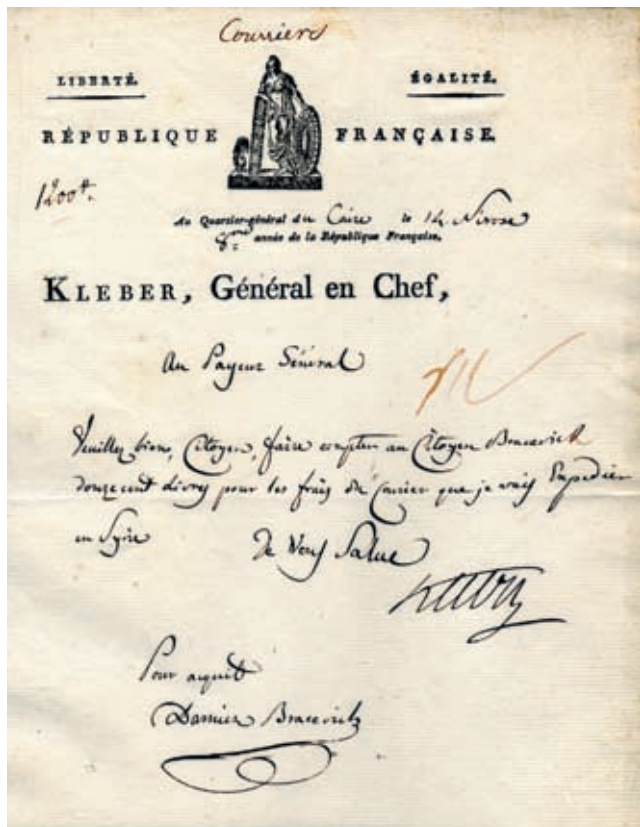 Courriers
LIBERTÉ. ÉGALITÉ.
RÉPUBLIQUE FRANÇAISE.
1200ᵗᵗ.
Au Quartier-général du Caire le 14 Nivose
8.me année de la République Française.
KLEBER, Général en Chef,
Au Payeur Général
Veuillez bien, Citoyen, faire compter au Citoyen Bracevich
douze cent livres pour les frais du Courier que je vais Expedier
en Syrie Je Vous Salue
Kleber
Pour aquit
Damien Bracevich